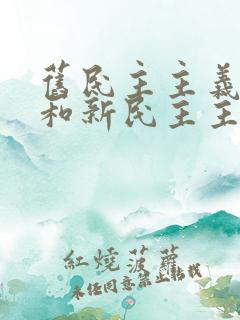 舊民主主義
和新民主主
紅燒菠蘿
未經同意禁止轉載